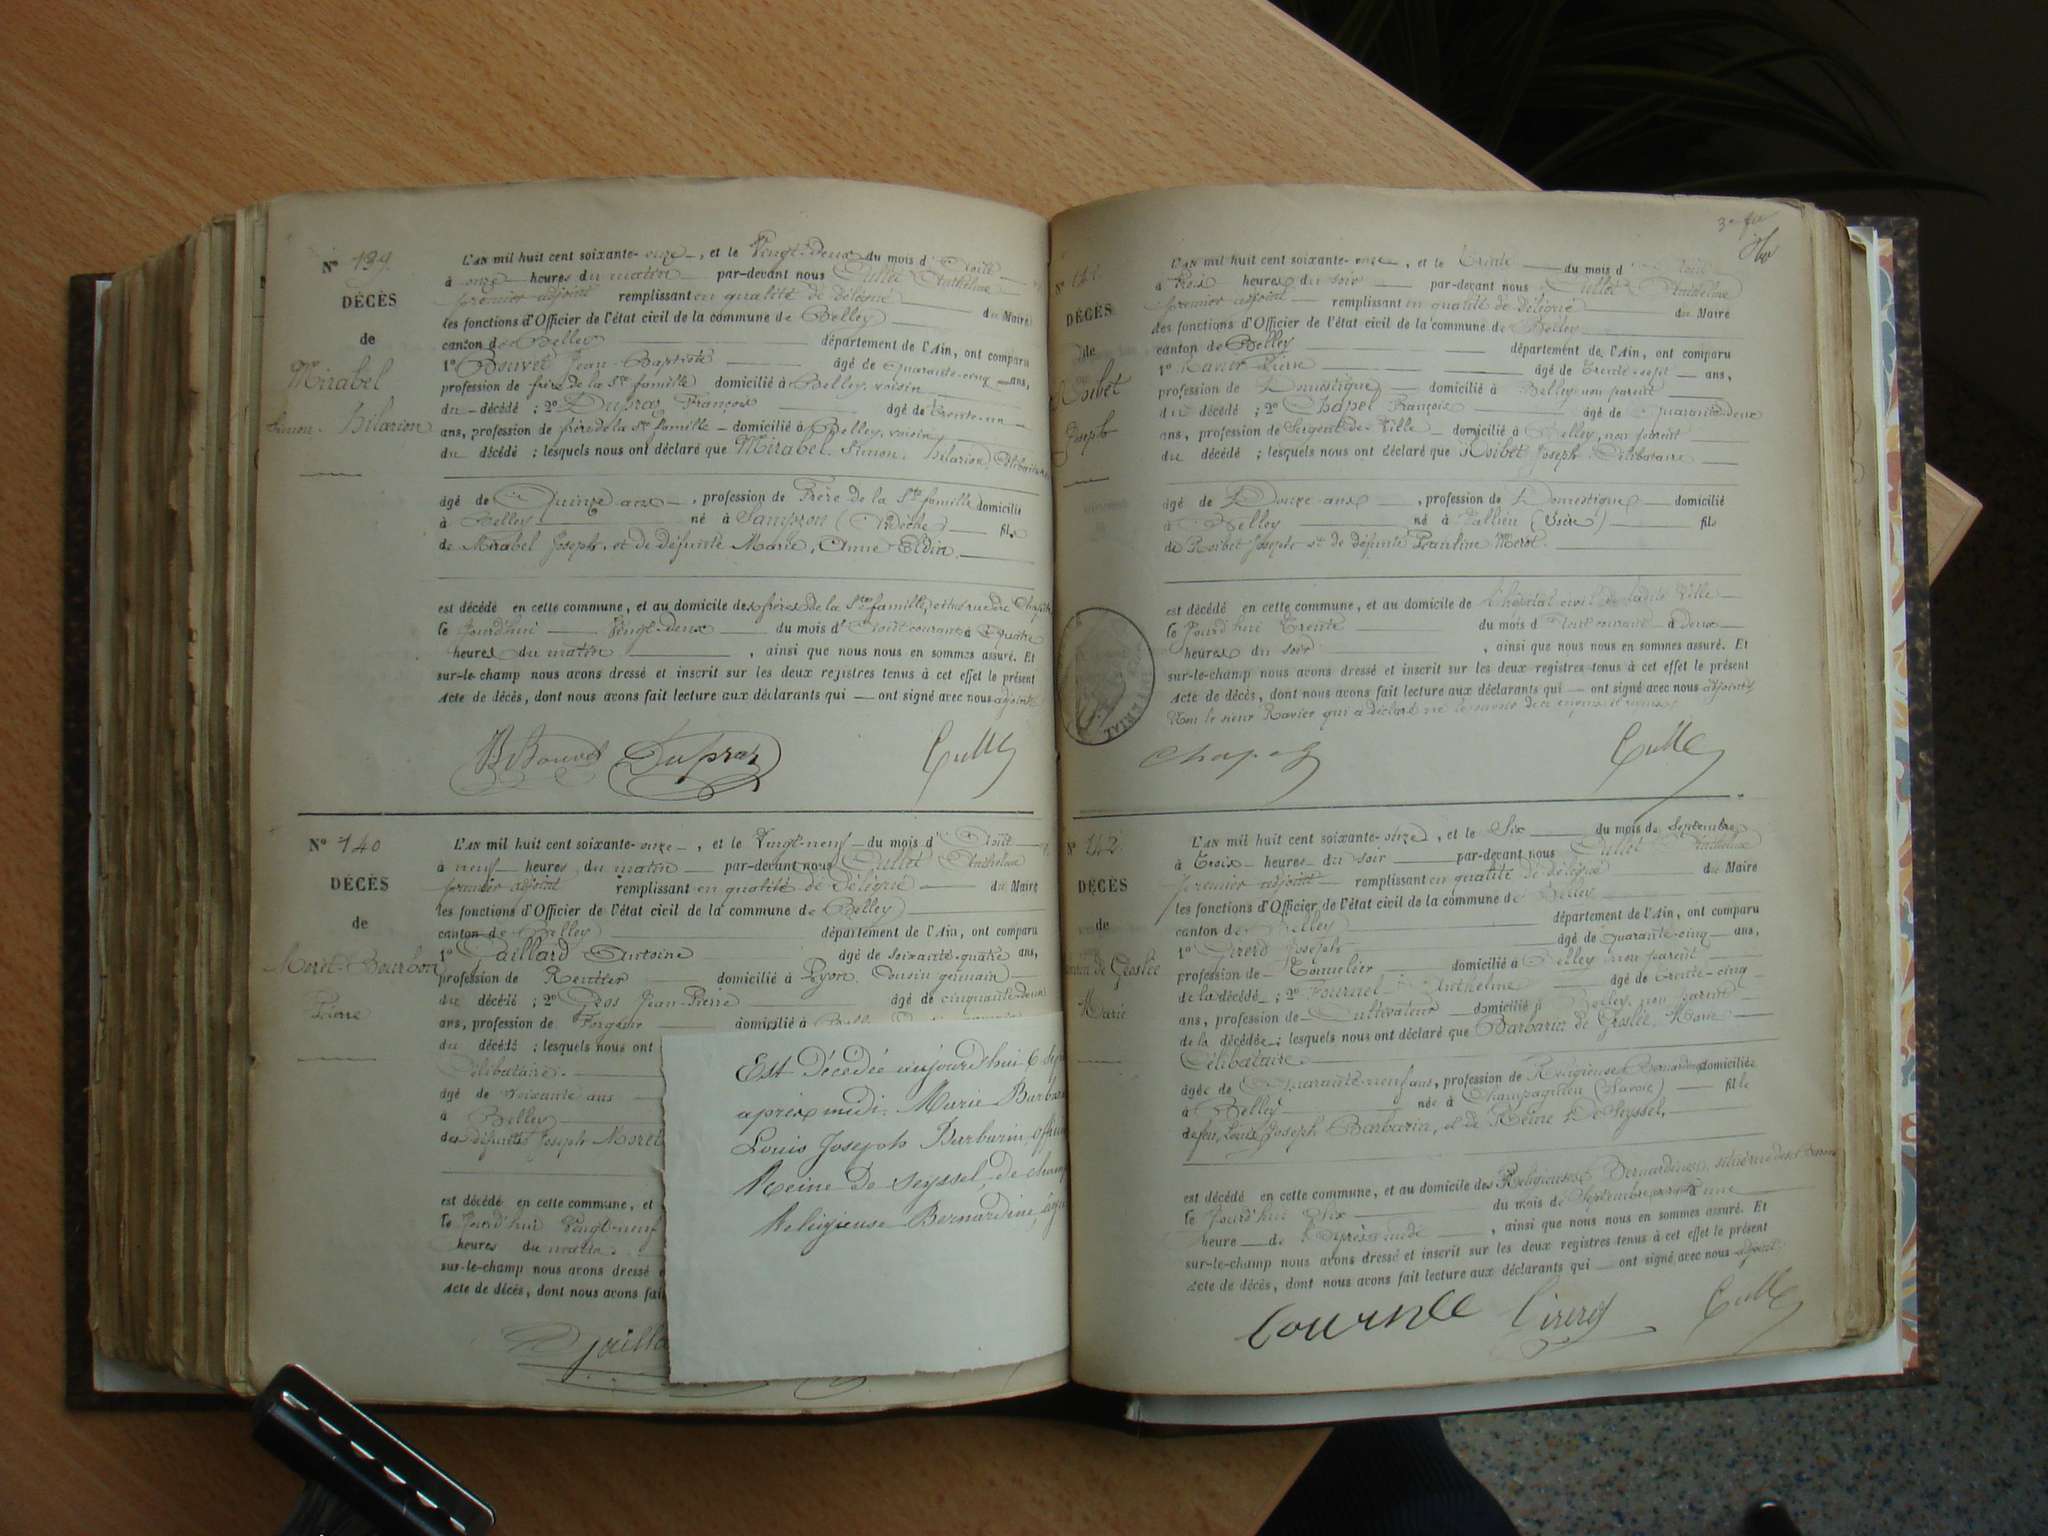 N° 139
DÉCÈS
de
Mirabel
Simon - Hilarion
L'AN mil huit cent soixante-onze, et le Vingt-deux du mois d'Août
à onze heures du matin par-devant nous Cullet Anthelme
premier adjoint remplissant en qualité de délégué du Maire
les fonctions d'Officier de l'état civil de la commune de Belley
canton de Belley département de l'Ain, ont comparu
1° Bouvet Jean-Baptiste âgé de Quarante-cinq ans,
profession de frère de la Ste famille domicilié à Belley, voisin
du décédé ; 2° Dupraz François âgé de trente-un
ans, profession de frère de la Ste famille domicilié à Belley, voisin
du décédé ; lesquels nous ont déclaré que Mirabel Simon Hilarion, Célibataire
âgé de Quinze ans, profession de Frère de la Ste famille domicilié
à Belley né à Sampzon (Ardèche) fils
de Mirabel Joseph, et de défunte Marie, Anne
est décédé en cette commune, et au domicile des frères de la Ste famille,
le Jourd'hui Vingt-deux du mois d'Août courant à Quatre
heures du matin, ainsi que nous nous en sommes assuré. Et
sur-le-champ nous avons dressé et inscrit sur les deux registres tenus à cet effet le présent
Acte de décès, dont nous avons fait lecture aux déclarants qui ont signé avec nous adjoint
Bouvet Dupraz Cullet
N° 140
DÉCÈS
de
Moret-Bourbon
Pierre
L'AN mil huit cent soixante-onze, et le Vingt-neuf du mois d'Août
à neuf heures du matin par-devant nous Cullet Anthelme
premier adjoint remplissant en qualité de délégué du Maire
les fonctions d'Officier de l'état civil de la commune de Belley
canton de Belley département de l'Ain, ont comparu
1° Gaillard Antoine âgé de soixante-quatre ans,
profession de Rentier domicilié à Lyon, cousin germain
du décédé ; 2° Gros Jean-Pierre âgé de cinquante-deux
ans, profession de domicilié à
du décédé ; lesquels nous ont
Célibataire.
âgé de soixante ans
à Belley
des défunts Joseph Moret
est décédé en cette commune, et
le Jourd'hui Vingt-neuf
heures du matin.
sur-le-champ nous avons dressé e
Acte de décès, dont nous avons fai
Est Décédée aujourd'hui 6 Sep
après midi. Marie Barba
Louis Joseph Barbarin,
Reine de Seyssel, de cham
Religieuse Bernardine,
3e
N° 141
DÉCÈS
de
Roibet
Joseph
L'AN mil huit cent soixante-onze, et le Trente du mois d'Août
à Trois heures du soir par-devant nous Cullet Anthelme
premier adjoint remplissant en qualité de délégué du Maire
les fonctions d'Officier de l'état civil de la commune de Belley
canton de Belley département de l'Ain, ont comparu
1° Ravier Pierre âgé de Trente-sept ans,
profession de Domestique domicilié à Belley non parent
du décédé ; 2° Chapel François âgé de Quarante-deux
ans, profession de Sergent-de-Ville domicilié à Belley, non parent
du décédé ; lesquels nous ont déclaré que Roibet Joseph Célibataire
âgé de Douze ans, profession de Domestique domicilié
à Belley né à (Isère) fils
de Roibet Joseph et de défunte Pauline
est décédé en cette commune, et au domicile de l'hôpital civil de ladite Ville
le Jourd'hui Trente du mois d'Août courant à deux
heures du soir, ainsi que nous nous en sommes assuré. Et
sur-le-champ nous avons dressé et inscrit sur les deux registres tenus à cet effet le présent
Acte de décès, dont nous avons fait lecture aux déclarants qui ont signé avec nous adjoint
Non le sieur Ravier qui a déclaré ne le savoir de ce enquis et requis.
Chapel Cullet
N° 142
DÉCÈS
de
de Groslée
Marie
L'AN mil huit cent soixante-onze, et le Six du mois de Septembre
à Trois heures du soir par-devant nous Cullet Anthelme
premier adjoint remplissant en qualité de délégué du Maire
les fonctions d'Officier de l'état civil de la commune de Belley
canton de Belley département de l'Ain, ont comparu
1° Girerd Joseph âgé de Quarante-cinq ans,
profession de Tonnelier domicilié à Belley non parent
de la décédé ; 2° Anthelme âgé de trente-cinq
ans, profession de Cultivateur domicilié à Belley non parent
de la décédée ; lesquels nous ont déclaré que Barbarin de Groslée Marie
Célibataire.
âgée de Quarante-neuf ans, profession de Religieuse Bernardine domiciliée
à Belley née à (Savoie) fille
de feu, Louis Joseph Barbarin, et de Reine De Seyssel,
est décédé en cette commune, et au domicile des Religieuses Bernardines,
le Jourd'hui Six du mois de Septembre à une
heure de Après midi, ainsi que nous nous en sommes assuré. Et
sur-le-champ nous avons dressé et inscrit sur les deux registres tenus à cet effet le présent
Acte de décès, dont nous avons fait lecture aux déclarants qui ont signé avec nous adjoint
Girerd Cullet